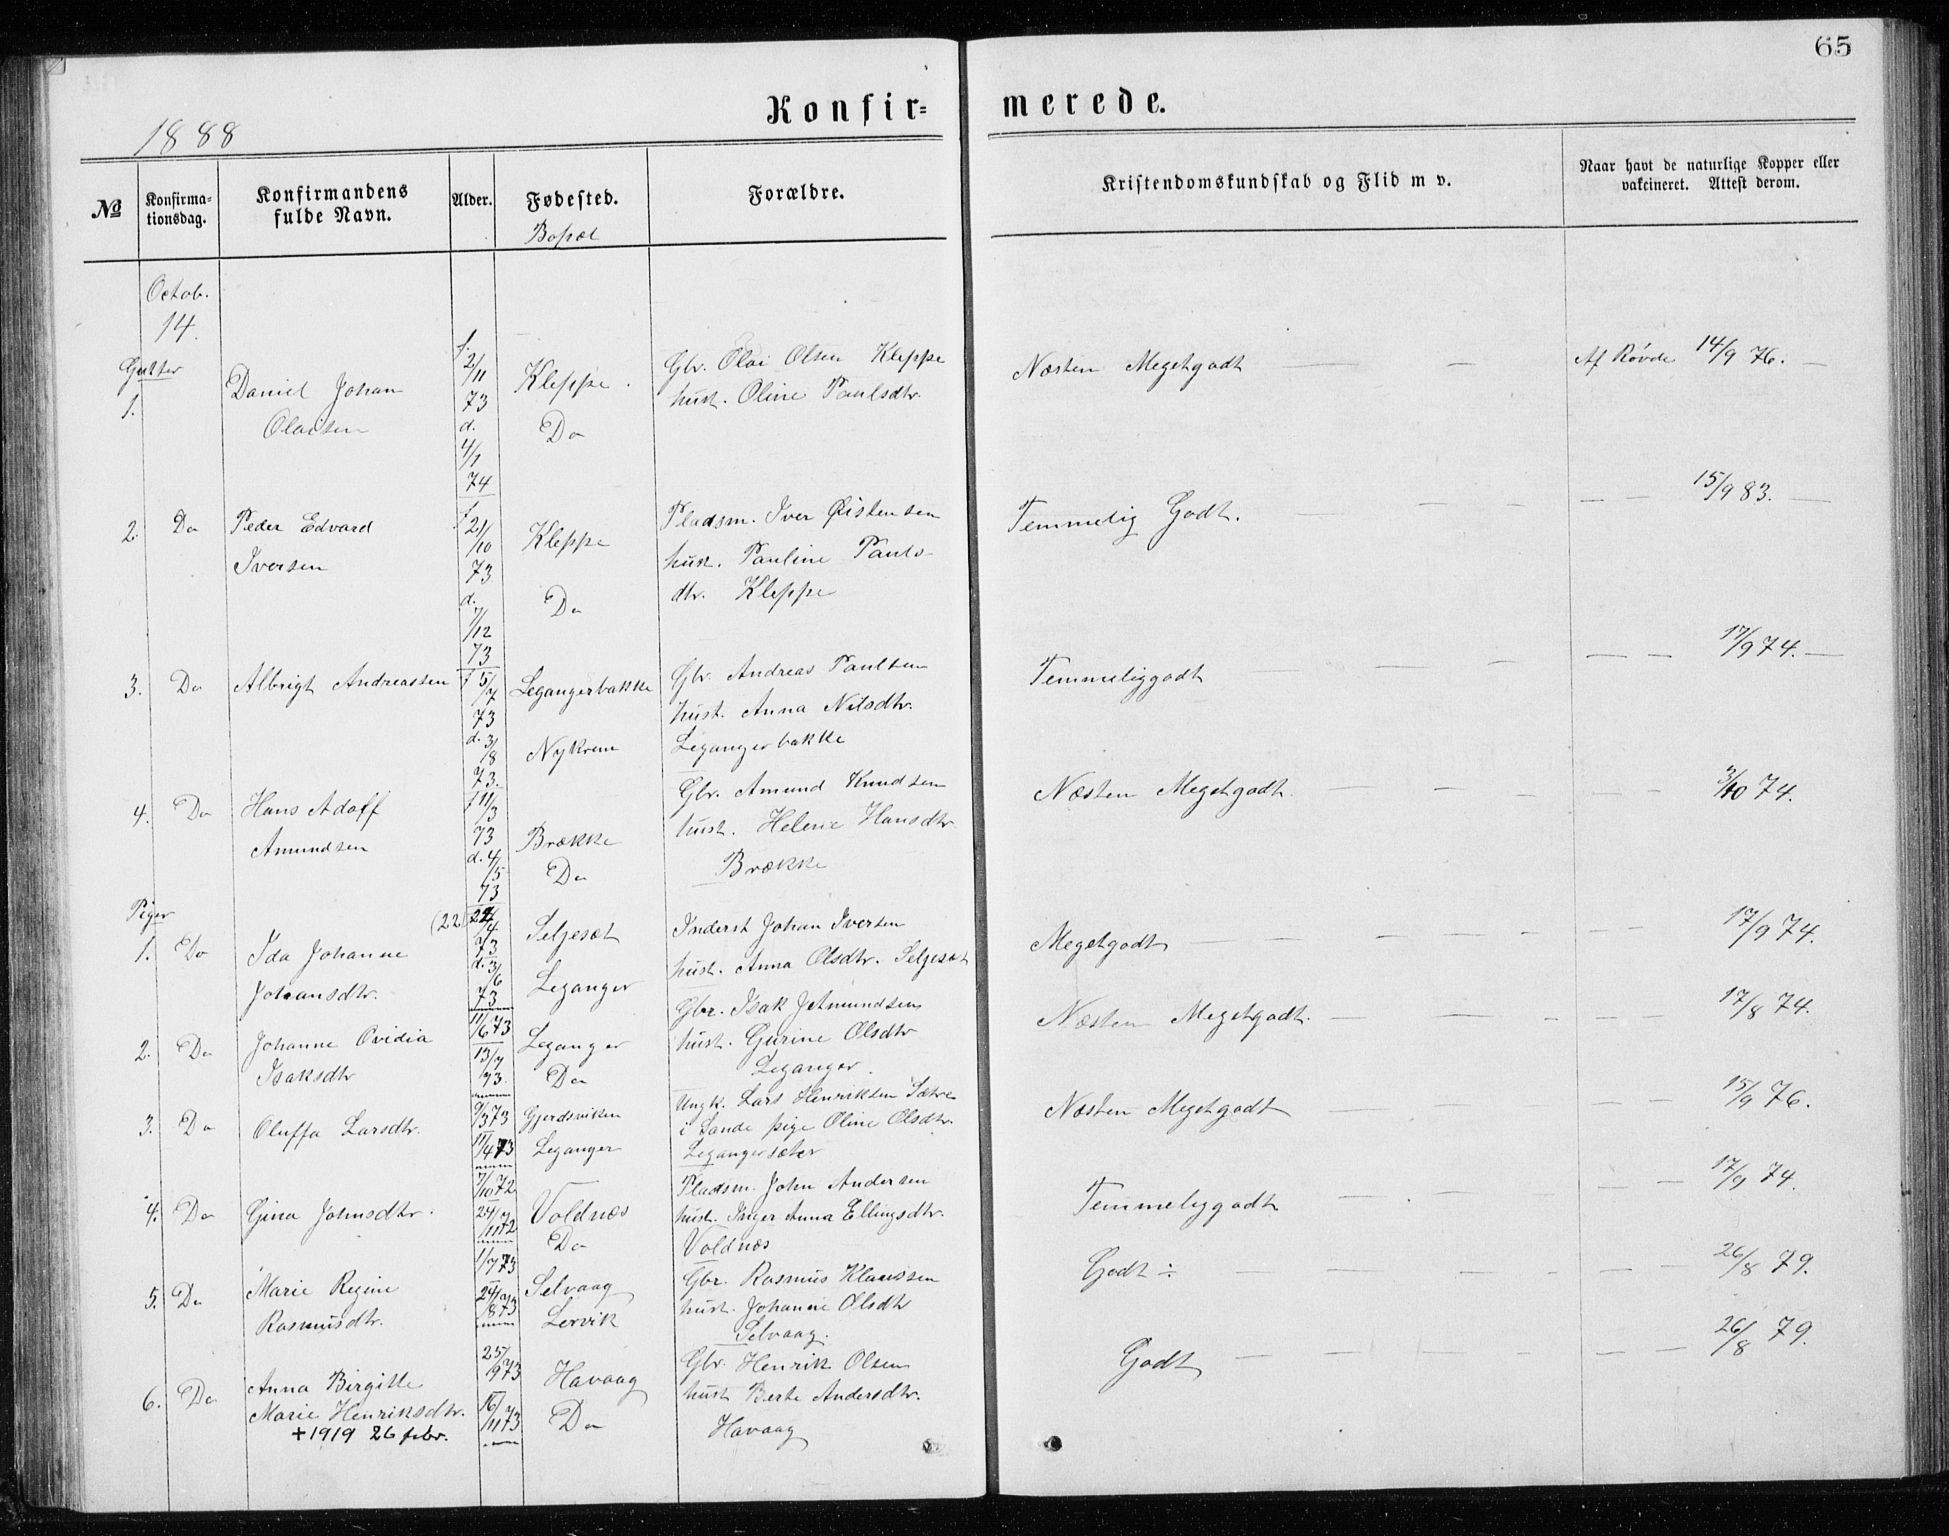 65
Konfir= merede.
1888
No
Konfirma=
tionsdag.
Konfirmandens
fulde Navn.
Alder.
Fødested.
Bopæl
Forældre.
Kristendomskundskab og Flid m v.
Naar havt de naturlige Kopper eller
vakcineret. Attest derom.
Octob.
14.
Gutter
1.
Daniel Johan
Olaisen
f.
2/11
73
d.
4/1
74
Kleppe
Do
Gbr. Olai Olsen Kleppe
hust. Oline Paulsdtr.
Næsten Megetgodt
Af Røvde 14/9 76.
2. Do Peder Edvard
Iversen
f
21/10
73
d.
7/12
73
Kleppe
Do
Pladsm. Iver Øistensen
hust. Pauline Pauls-
dtr. Kleppe
Temmelig Godt.
15/9 83.
3. Do Albrigt Andreassen
f 5/7
73
d. 3/8
73.
Legangerbakke
Nykrem
Gbr. Andreas Paulsen
hust. Anna Nilsdtr.
Legangerbakke
Temmeliggodt
17/9 74.
4. Do Hans Adoff
Amundsen
f 11/3
73
d. 4/5
73
Brække
Do
Gbr. Amund Knudsen
hust. Helene Hansdtr
Brække
Næsten Megetgodt.
3/10 74.
Piger
1. Do Ida Johanne
Johansdtr.
(22) 22/4
73
d. 3/6
73
Seljesæt
Leganger
Inderst Johan Iversen
hust. Anna Olsdtr. Seljesæt
Megetgodt
17/9 74.
2. Do Johanne Ovidia
Isaksdtr
11/6 73
13/7
73.
Leganger
Do
Gbr. Isak J Amundsen
hust. Gurine Olsdtr
Leganger.
Næsten Megetgodt.
17/8 74.
3. Do Oluffa Larsdtr.
9/3 73
11/4 73
Gjerdsviken
Leganger
Ungk. Lars Henriksen Sætre
i Sande pige Oline Olsdtr.
Legangersæter
Næsten Megetgodt
15/9 76.
4. Do Gina Johnsdtr.
7/10 72
24/11 72
Voldnæs
Do
Pladsm. John Andersen
hust. Inger Anna Ellingsdtr.
Voldnæs
Temmeliggodt
17/9 74.
5. Do Marie Regine
Rasmusdtr.
1/7 73
24/8 73
Selvaag
Lervik
Gbr. Rasmus Klaussen
hust. Johanne Olsdtr
Selvaag.
Godt ÷
26/8 79.
6. Do Anna Birgitte
Marie Henriksdtr.
+ 1919 26 febr.
25/9 73
16/11 73
Havaag
Do
Gbr. Henrik Olsen
hust Berte Andersdtr.
Havaag
Godt
26/8 79.